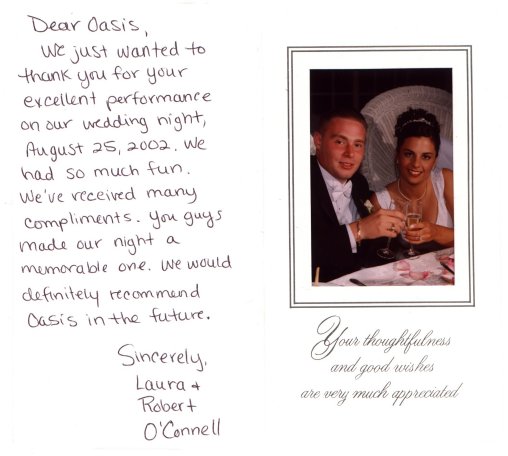 Dear Oasis,
We just wanted to
thank you for your
excellent performance
on our wedding night,
August 25, 2002. We
had so much fun.
We've received many
compliments. You guys
made our night a
memorable one. We would
definitely recommend
Oasis in the future.
Sincerely,
Laura +
Robert
O'Connell
Your thoughtfulness
and good wishes
are very much appreciated